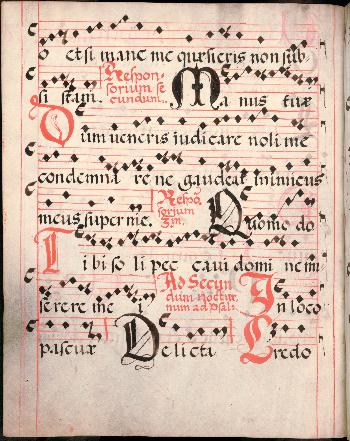 et si mane me quæsieris non sub
si stam. Respon-
sorium se
cundum. Ma nus tuæ
Cum veneris iudicare noli me
condemna re ne gaudeat inimicus
meus super me. Respo
sorium
3m. Quomo do
Ti bi so li pec cavi domi ne mi
serere me i Ad Secun
dum noctur
num ad Psal. In loco
pascuæ Delicta Credo